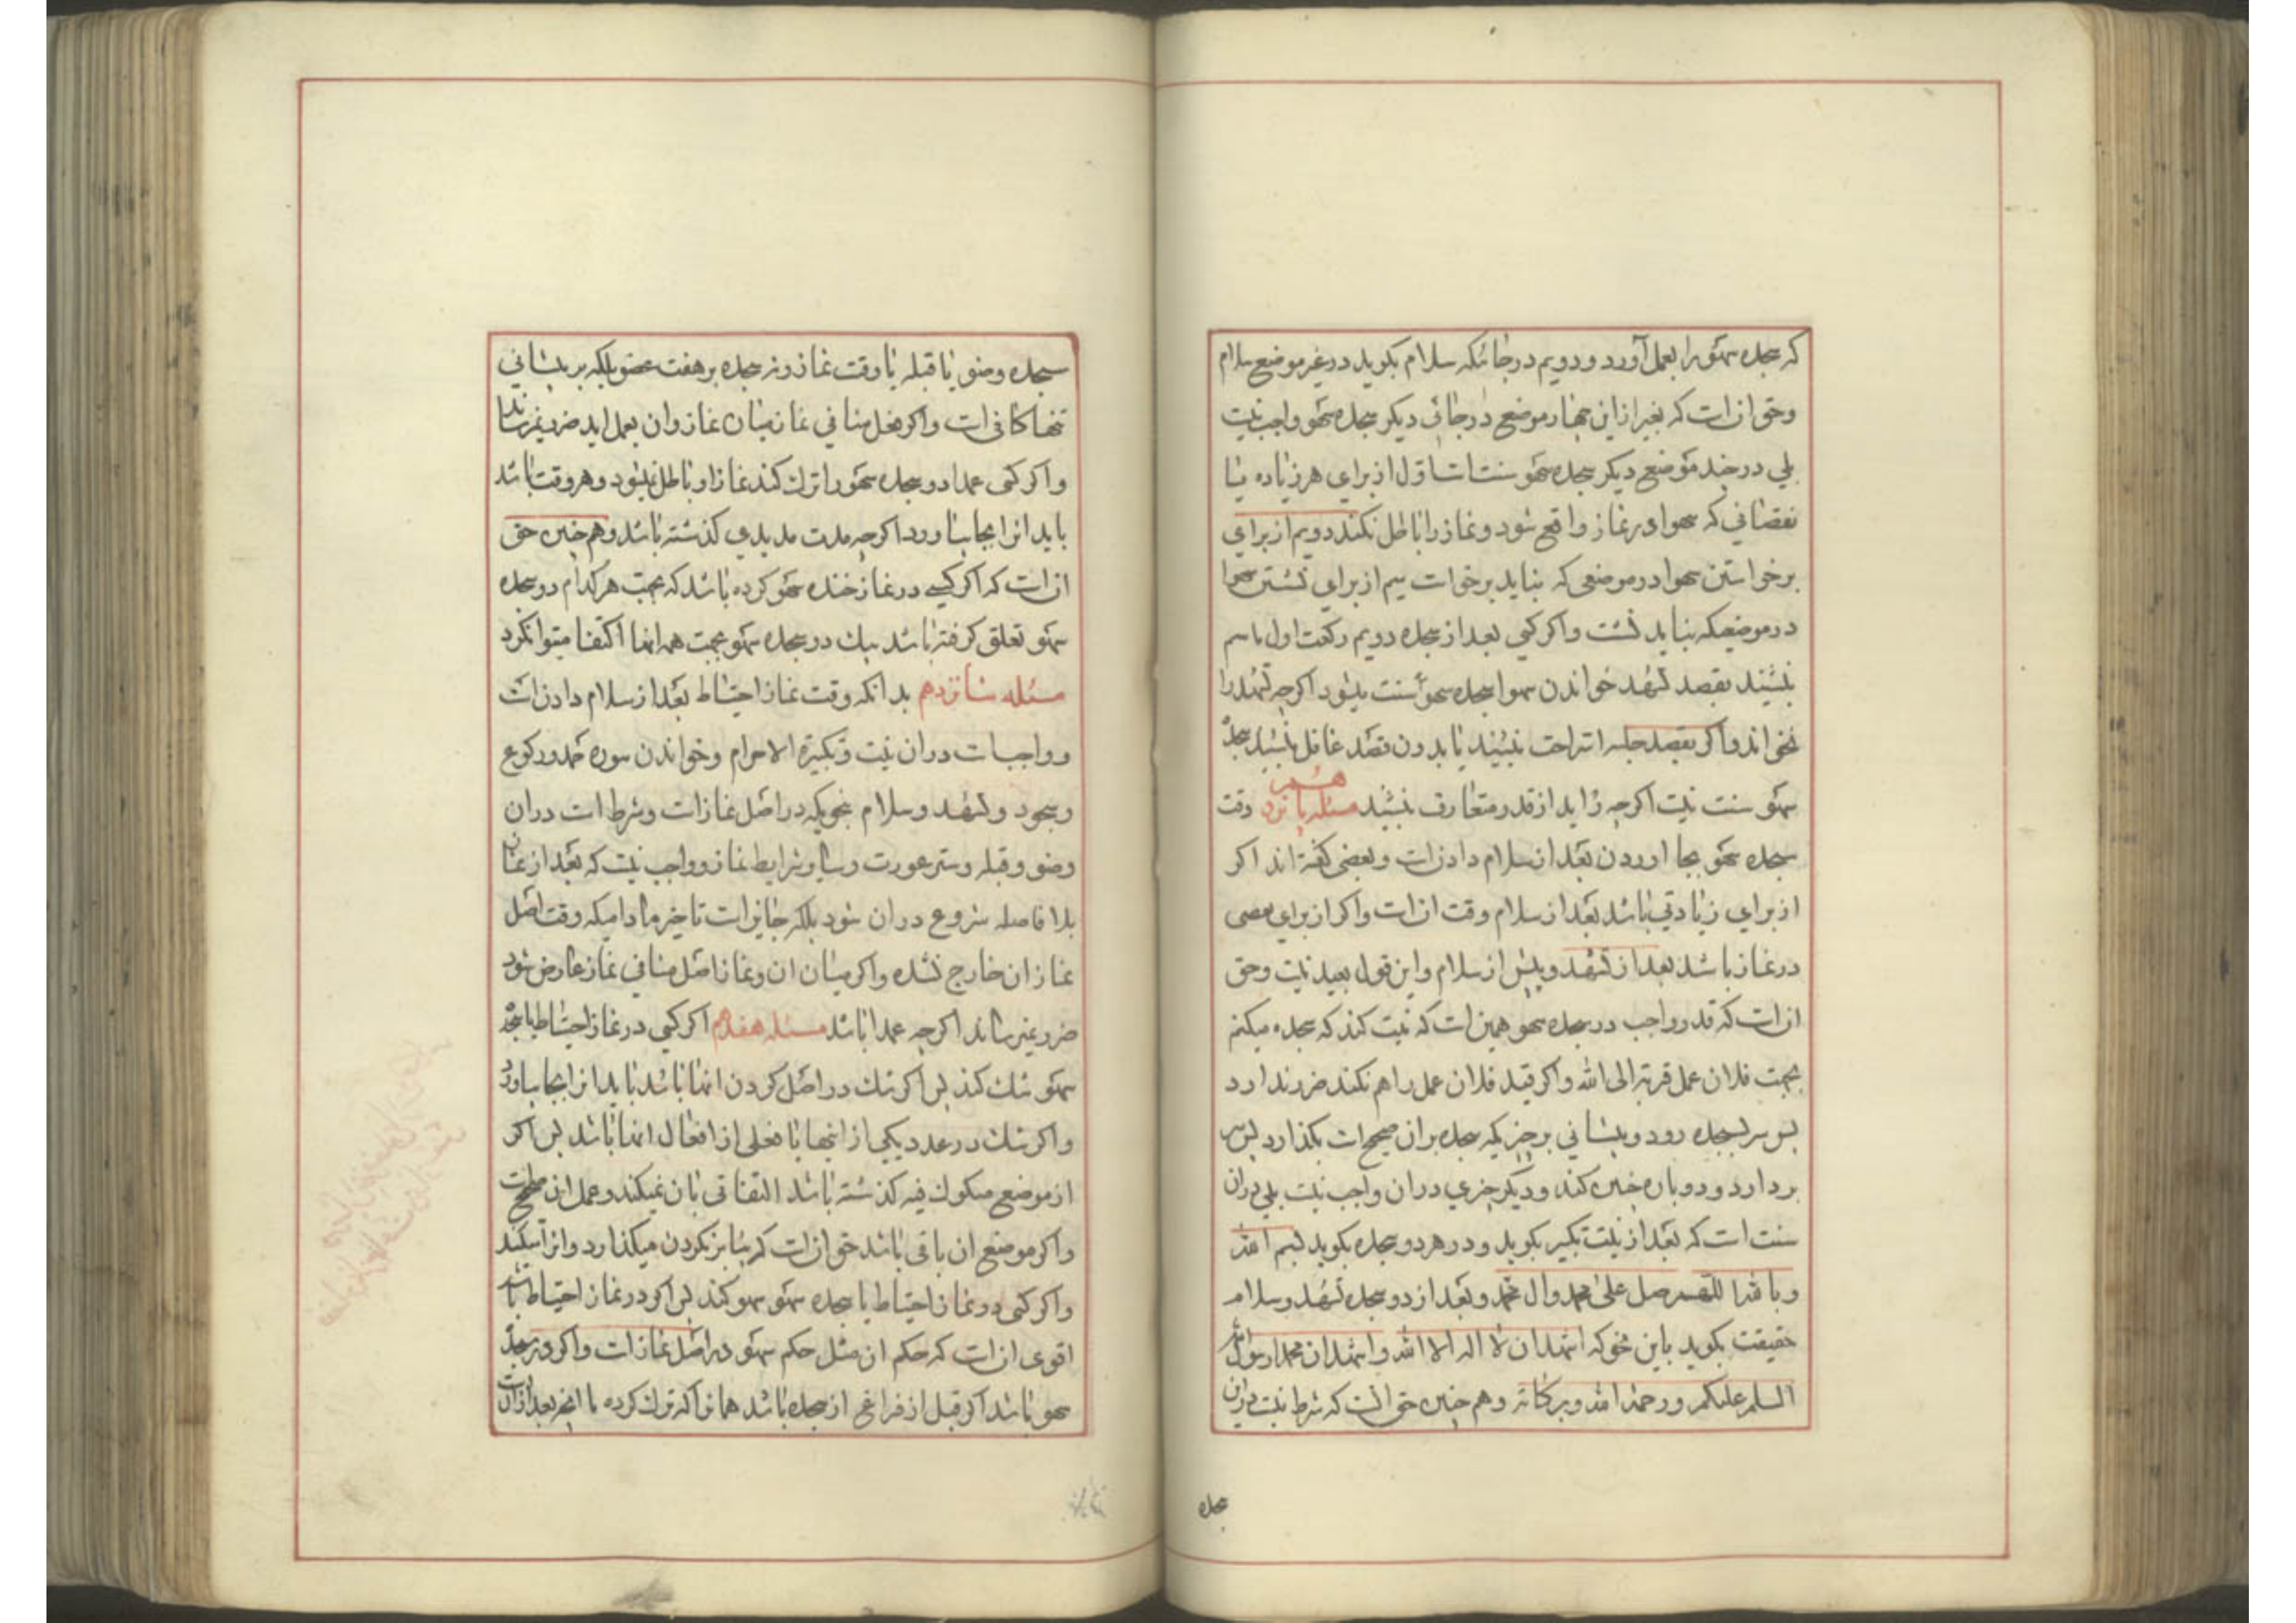 که سجده سهو را بعمل آورد و دویم در جائیکه سلام بکوید در غیر موضع سلام
و حق ان است که بغیر از این چهار موضع در جائی دیکر سجده سهو واجب نیست
بلی در چند موضع دیکر سجده سهو سنت است اول از برای هر زیاده یا
نقصانی که سهوا در نماز واقع شود و نماز را باطل نکند دویم از برای
برخواستن سهوا در موضعی که نباید برخواست سیم از برای نشستن سهوا
در موضعیکه نباید نشست و اکر کسی بعد از سجده دویم رکعت اول یا سیم
بنشیند بقصد تشهد خواندن سهوا سجده سهو سنت میشود اکر چه تشهد را
نخواند و اکر بقصد جلسه استراحت بنشیند یا بدون قصد غافل بنشیند سجده
سهو سنت نیست اکر چه زاید از قدر متعارف بنشیند مسئله پانزدهم وقت
سجده سهو بجا اوردن بعد از سلام دادن است و بعضی کفته اند اکر
از برای زیادتی باشد بعد از سلام وقت ان است و اکر از برای نقصی
در نماز باشد بعد از تشهد و پیش از سلام و این قول بعید نیست و حق
ان است که قدر واجب در سجده سهو همین است که نیت کند که سجده میکنم
بجهت فلان عمل قربة الی الله و اکر قید فلان عمل را هم نکند ضرر ندارد
پس سر بسجده رود و پیشانی بر چیزیکه سجده بر ان صحیح است بکذارد پس سر
بردارد و دوباره چنین کند و دیکر چیزی در ان واجب نیست بلی در ان
سنت است که بعد از نیت تکبیر بکوید و در هر دو سجده بکوید بسم الله
و بالله اللهم صل علی محمد وال محمد و بعد از دو سجده تشهد و سلام
حقیقت بکوید باین نحو که اشهد ان لا اله الا الله و اشهد ان محمدا رسول الله
السلم علیکم و رحمة الله و برکاته و هم چنین حق انست که شرط نیست در این
سجده
سجده وضو یا قبله یا وقت نماز و نه سجده بر هفت عضو بلکه بر پیشانی
تنها کافی است و اکر فعل منافی نماز میان نماز و ان بعمل اید ضرر نمیرساند
و اکر کسی عمدا دو سجده سهو را ترک کند نماز او باطل نمیشود و هر وقت باشد
باید انرا بجا بیاورد اکر چه مدت مدیدی کذشته باشد و هم چنین حق
ان است که اکر کسی در نماز چند سهو کرده باشد که بجهت هر کدام دو سجده
سهو تعلق کرفته باشد بیک دو سجده سهو بجهت همه انها اکتفا میتوان کرد
مسئله شانزدهم بدانکه وقت نماز احتیاط بعد از سلام دادن است
و واجبات در ان نیت و تکبیرة الاحرام و خواندن سوره حمد و رکوع
و سجود و تشهد و سلام بنحویکه در اصل نماز است و شرط است در ان
وضو و قبله و ستر عورت و سایر شرایط نماز و واجب نیست که بعد از نماز
بلا فاصله شروع در ان شود بلکه جایز است تاخیر مادامیکه وقت اصل
نماز ان خارج نشده و اکر میان ان و نماز اصل منافی نماز عارض شود
ضرر نمیرساند اکر چه عمدا باشد مسئله هفدهم اکر کسی در نماز احتیاط یا سجده
سهو شک کند پس اکر شک در اصل کردن انها باشد باید انرا بجا بیاورد
و اکر شک در عدد یکی از اینها یا فعلی از افعال انها باشد پس اکر
از موضع مشکوک فیه کذشته باشد التفاتی بان نمیکند و عمل ان صحیح است
و اکر موضع ان باقی باشد حق ان است که بنا بر نکردن میکذارد و انرا میکند
و اکر کسی در نماز احتیاط یا سجده سهو سهو کند پس اکر در نماز احتیاط باشد
اقوی ان است که حکم ان مثل حکم سهو در اصل نماز است و اکر در سجده
سهو باشد اکر قبل از فراغ از سجده باشد همانرا که ترک کرده با انچه بعد از ان است